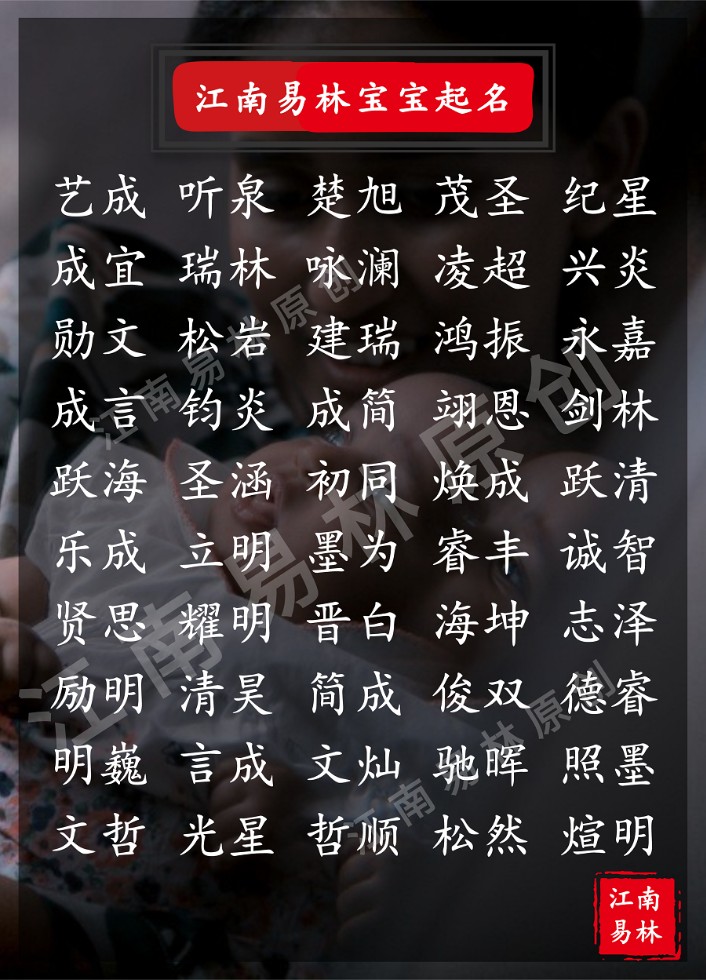 江南易林宝宝起名
艺成 听泉 楚旭 茂圣 纪星
成宜 瑞林 咏澜 凌超 兴炎
勋文 松岩 建瑞 鸿振 永嘉
成言 钧炎 成简 翊恩 剑林
跃海 圣涵 初同 焕成 跃清
乐成 立明 墨为 睿丰 诚智
贤思 耀明 晋白 海坤 志泽
励明 清昊 简成 俊双 德睿
明巍 言成 文灿 驰晖 照墨
文哲 光星 哲顺 松然 煊明
江南易林原创
江南易林原创
江南易林原创
江南
易林